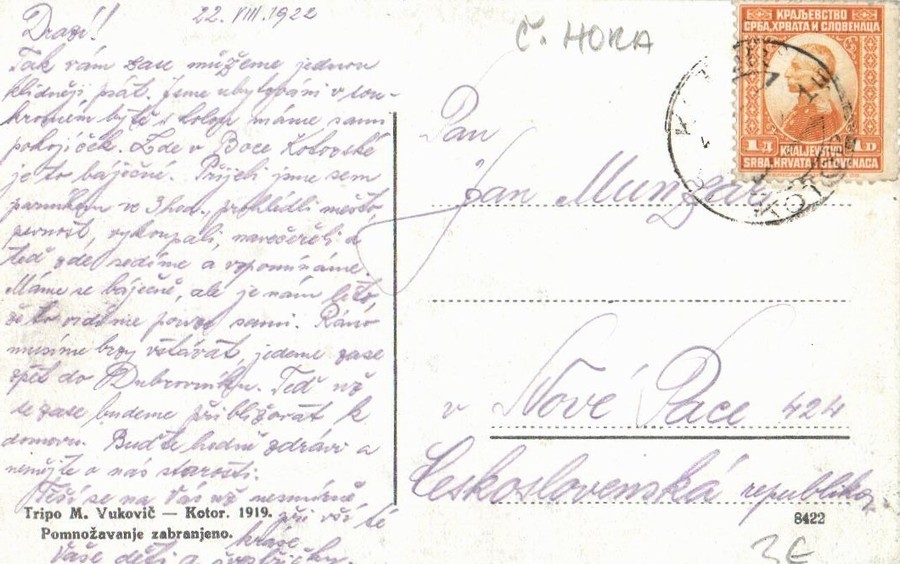 22. VIII. 1922
Drazí!
Tak vám zase můžeme jednou
klidněji psát. Jsme ubytováni v sou-
kromém bytě a máme sami
pokojíček. Zde v Boce Kotorské
je to báječné. Přijeli jsme sem
parníkem ve 3 hod, prohlédli město,
pevnost, vykoupali, navečeřeli a
teď zde sedíme a vzpomínáme.
Máme se báječně, ale je nám líto,
že to vidíme pouze sami. Ráno
musíme brzy vstávat, jedeme zase
zpět do Dubrovníku. Teď už
se zase budeme přibližovat k
domovu. Buďte hodně zdrávi a
nemějte o nás starosti.
Těší se na Vás už nesmírně
při vší té
kráse
Vaše děti a
Tripo M. Vukovič — Kotor. 1919.
Pomnožavanje zabranjeno.
Č. HORA
КРАЉЕВСТВО
СРБА, ХРВАТА И СЛОВЕНАЦА
1 Д 1 D
KRALJEVSTVO
SRBA, HRVATA I SLOVENACA
KOTOR
Pan
Jan Munzar
v Nové Pace 424
Československá republika
8422
3€